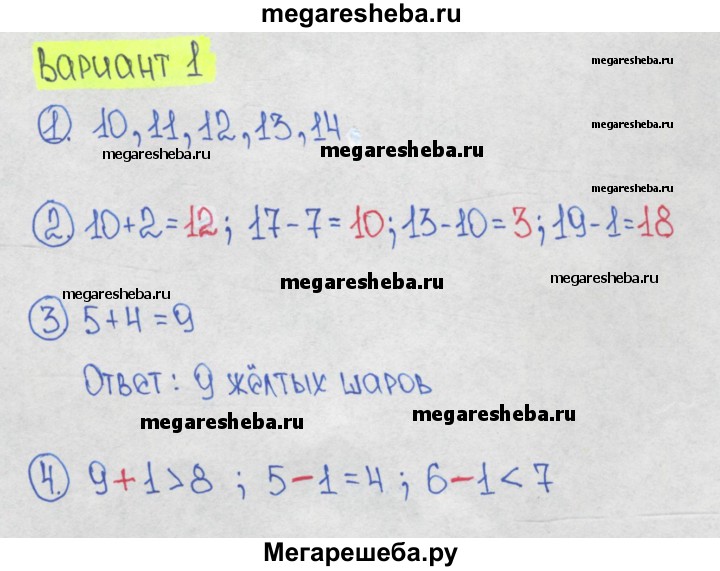 megaresheba.ru
Вариант 1
megaresheba.ru
1. 10, 11, 12, 13, 14
megaresheba.ru
megaresheba.ru
megaresheba.ru
megaresheba.ru
2. 10+2=12; 17-7=10; 13-10=3; 19-1=18
megaresheba.ru
megaresheba.ru
megaresheba.ru
3 5+4=9
Ответ: 9 жёлтых шаров
megaresheba.ru
megaresheba.ru
4. 9+1>8; 5-1=4; 6-1<7
Мегарешеба.ру